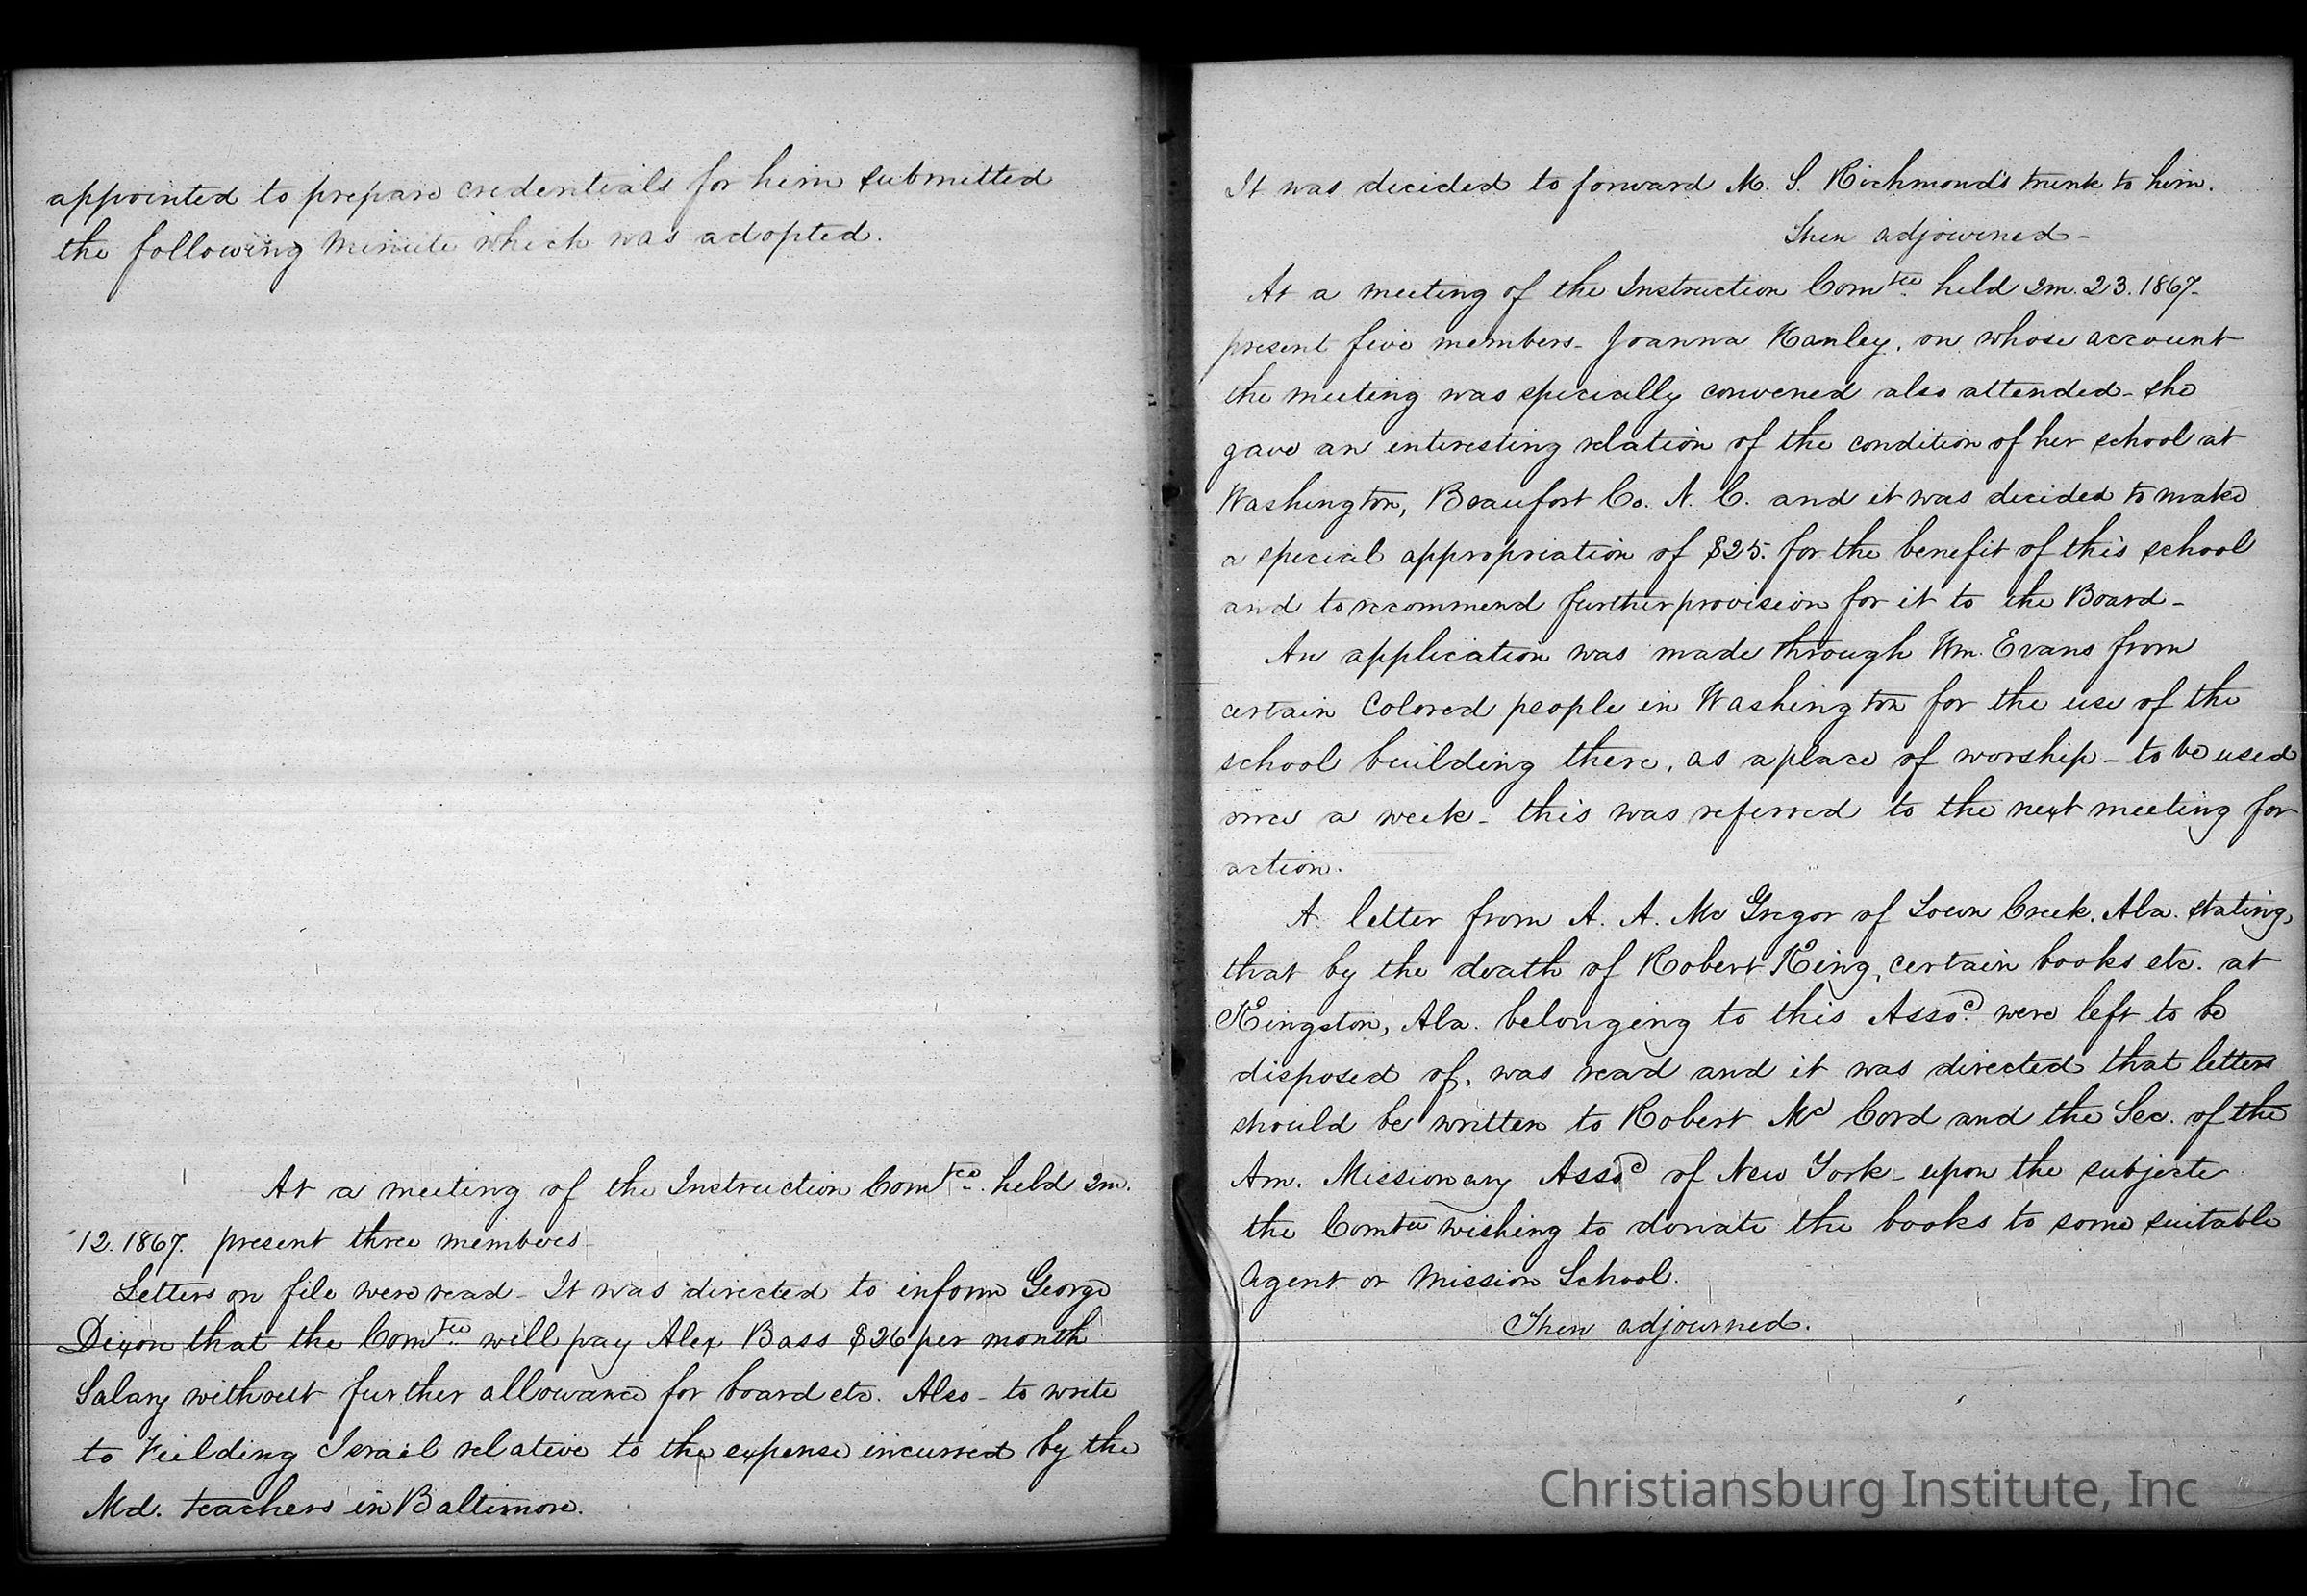 appointed to prepare credentials for him submitted
the following Minute which was adopted.
At a meeting of the Instruction Comtee held 2m.
12. 1867. present three members
Letters on file were read - It was directed to inform George
Dixon that the Comtee will pay Alex Bass $26 per month
Salary without further allowance for board etc. Also - to write
to Feilding Israel relative to the expense incurred by the
Md. teachers in Baltimore.
It was decided to forward M. S. Richmond's trunk to him.
Then adjourned -
At a meeting of the Instruction Comtee held 2m. 23. 1867-
present five members - Joanna Hanley, on whose account
the meeting was specially convened also attended - she
gave an interesting relation of the condition of her school at
Washington, Beaufort Co. N. C. and it was decided to make
a special appropriation of $25. for the benefit of this school
and to recommend further provision for it to the Board -
An application was made through Wm. Evans from
certain Colored people in Washington for the use of the
school building there, as a place of worship - to be used
once a week - this was referred to the next meeting for
action.
A letter from A. A. McGregor of Town Creek, Ala. stating,
that by the death of Robert King, certain books etc. at
Kingston, Ala. belonging to this Assoc. were left to be
disposed of, was read and it was directed that letters
should be written to Robert Mc Cord and the Sec. of the
Am. Missionary Assoc of New York - upon the subject
the Comtee wishing to donate the books to some suitable
Agent or Mission School.
Then adjourned.
Christiansburg Institute, Inc